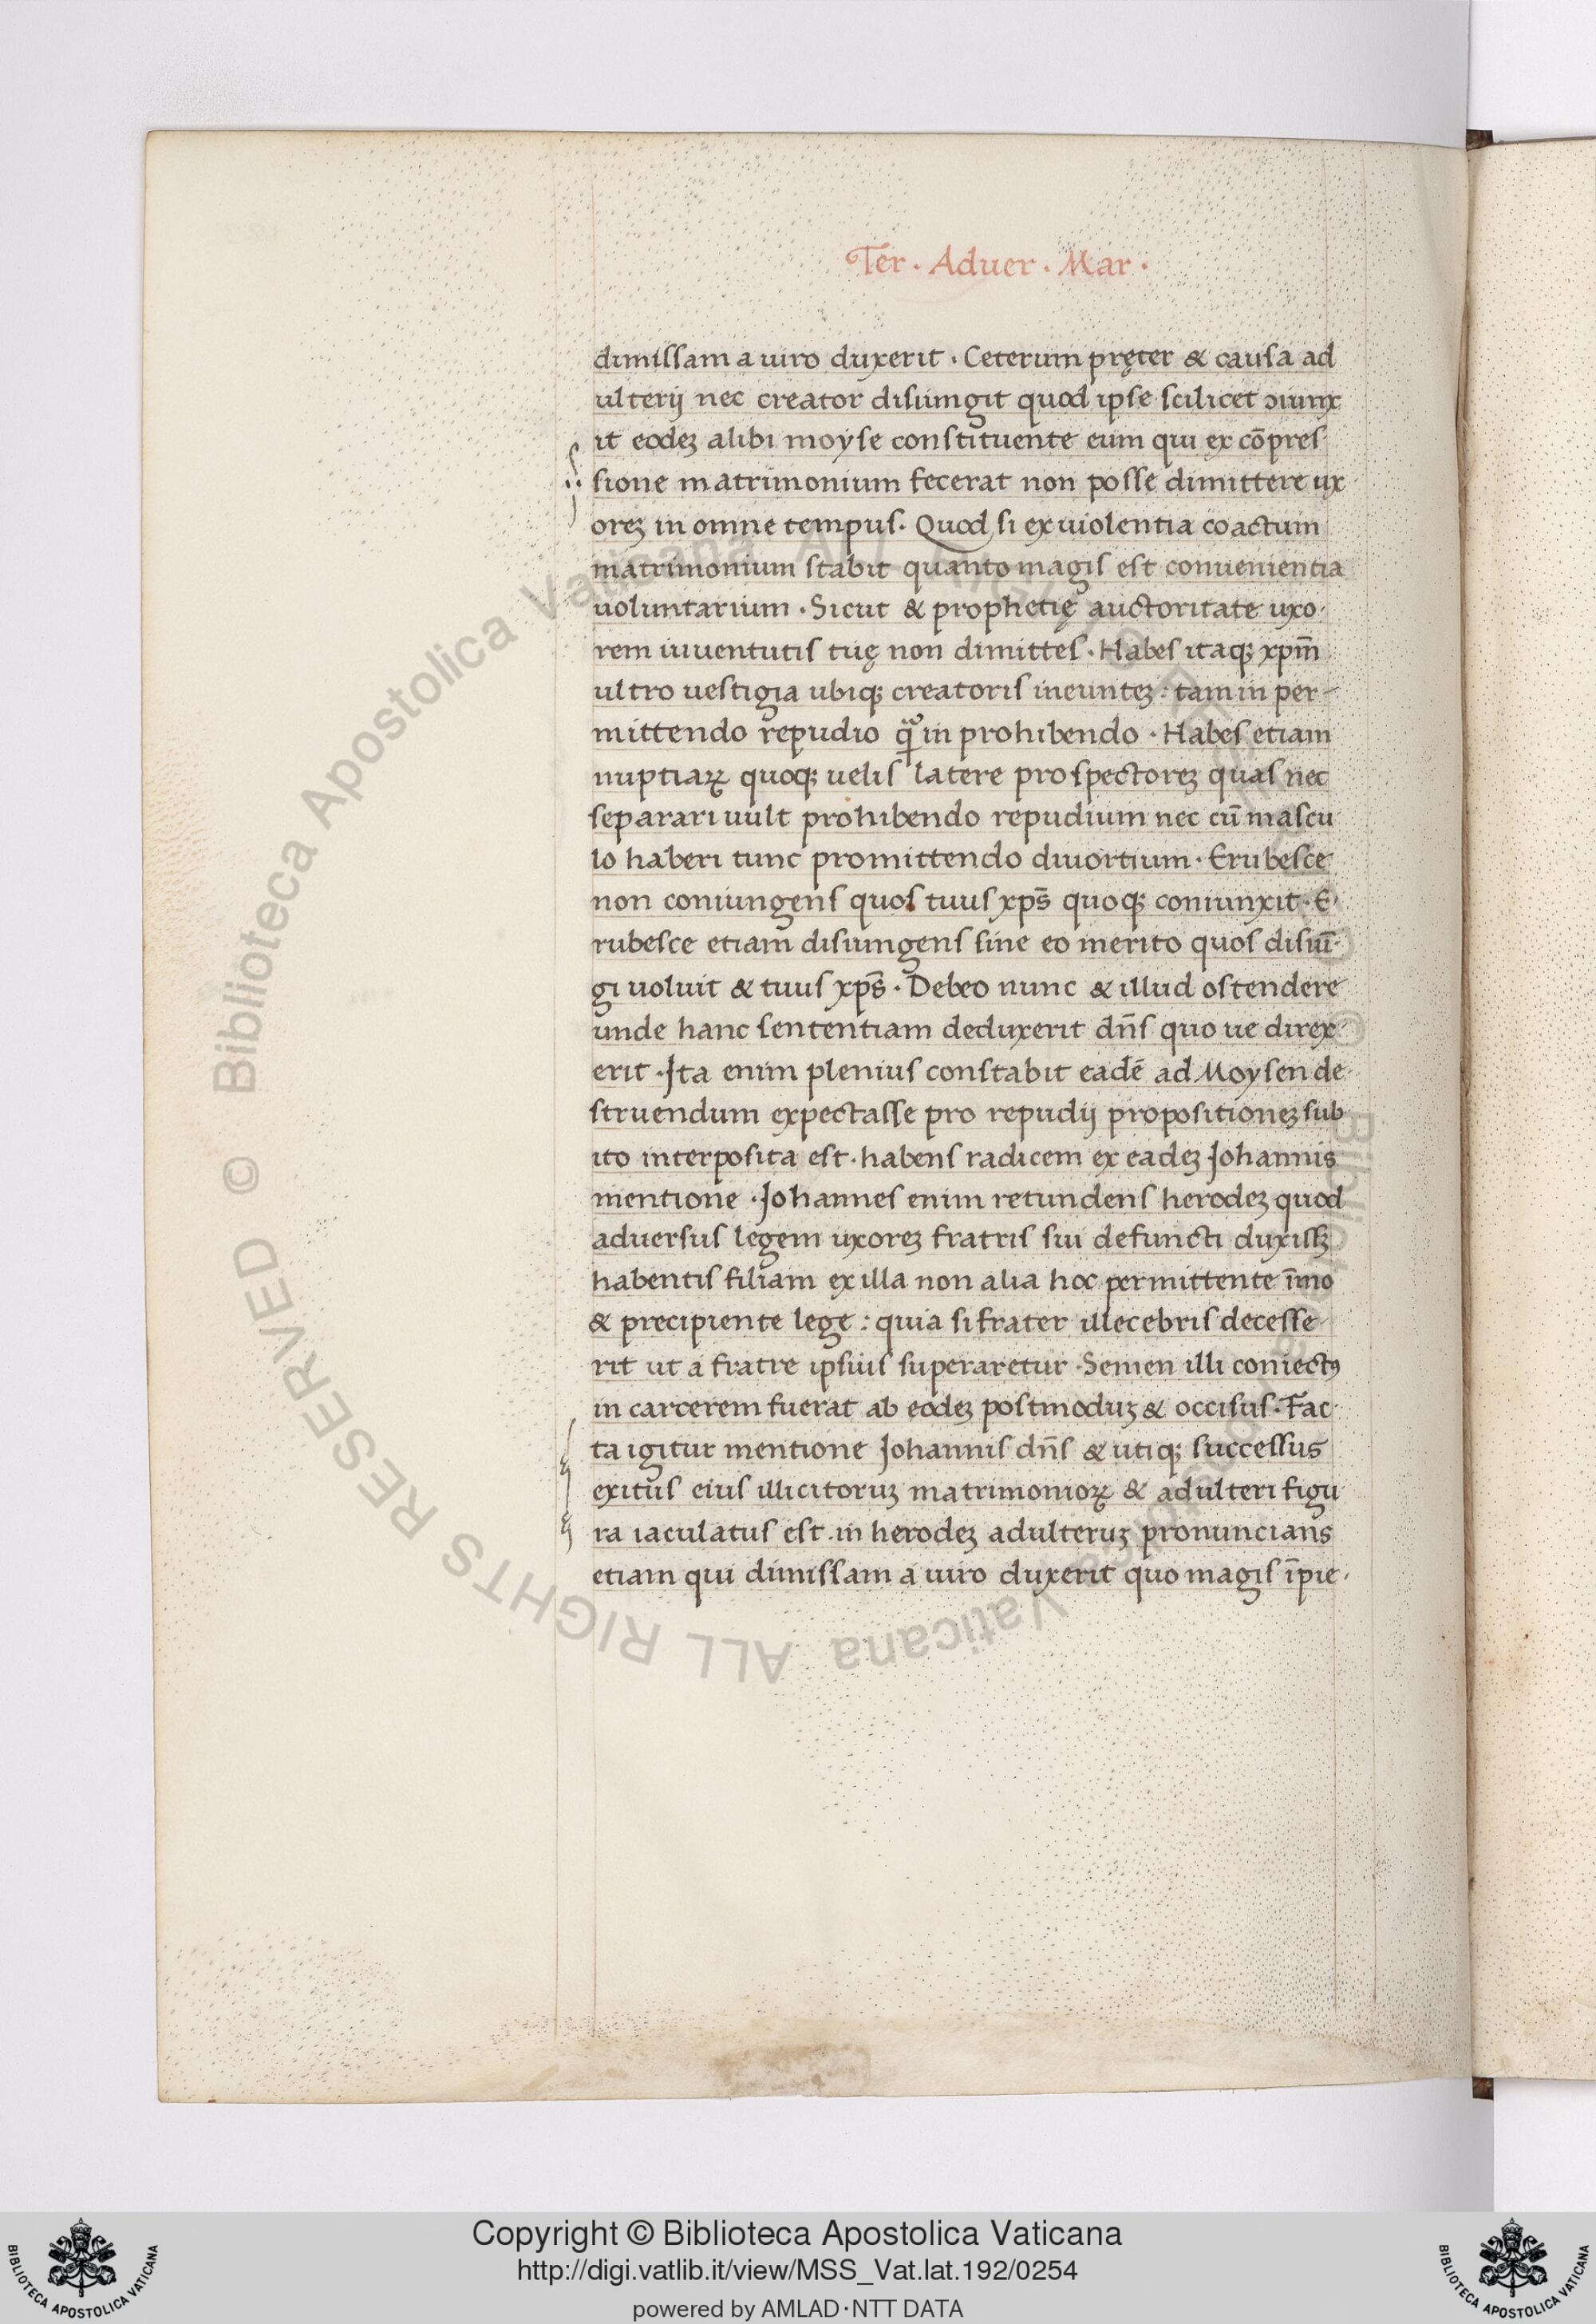 Ter · Aduer · Mar ·
dimissam a uiro duxerit · Ceterum pręter & causa ad
ulterij nec creator disiungit quod ipse scilicet ↄiunx
it eodeꝫ alibi moyse constituente eum qui ex cōpres
sione matrimonium fecerat non posse dimittere ux
oreꝫ in omne tempus · Quod si ex uiolentia coactum
matrimonium stabit quanto magis est conuenientia
uoluntarium · Sicut & prophetię auctoritate uxo-
rem iuuentutis tuę non dimittes · Habes itaqꝫ xpm̄
ultro uestigia ubiqꝫ creatoris ineunteꝫ : tam in per-
mittendo repudio qͣ̃ in prohibendo · Habes etiam
nuptiaꝝ quoqꝫ uelis latere prospectoreꝫ quas nec
separari uult prohibendo repudium nec cū mascu
lo haberi tunc promittendo diuortium · Erubesce
non coniungens quos tuus xps̄ quoqꝫ coniunxit · E-
rubesce etiam disiungens sine eo merito quos disiū-
gi uoluit & tuus xps̄ · Debeo nunc & illud ostendere
unde hanc sententiam deduxerit dn̄s quo ue direx-
erit · Ita enim plenius constabit eadē ad Moysen de-
struendum expectasse pro repudij propositioneꝫ sub
ito interposita est · habens radicem ex eadeꝫ Johannis
mentione · Johannes enim retundens herodeꝫ quod
aduersus legem uxoreꝫ fratris sui defuncti duxissꝫ
habentis filiam ex illa non alia hoc permittente īmo
& precipiente lege : quia si frater illecebris decesse-
rit ut a fratre ipsius superaretur · Semen illi coniectꝰ
in carcerem fuerat ab eodeꝫ postmoduꝫ & occisus · Fac-
ta igitur mentione Johannis dn̄s & utiqꝫ successus
exitus eius illicitoruꝫ matrimonioꝝ & adulteri figu
ra iaculatus est in herodeꝫ adulteruꝫ pronuncians
etiam qui dimissam a uiro duxerit quo magis īpie-
© Biblioteca Apostolica Vaticana ALL RIGHTS RESERVED © Biblioteca Apostolica Vaticana ALL RIGHTS RESERVED
Copyright © Biblioteca Apostolica Vaticana
http://digi.vatlib.it/view/MSS_Vat.lat.192/0254
powered by AMLAD·NTT DATA
BIBLIOTECA APOSTOLICA VATICANA
BIBLIOTECA APOSTOLICA VATICANA